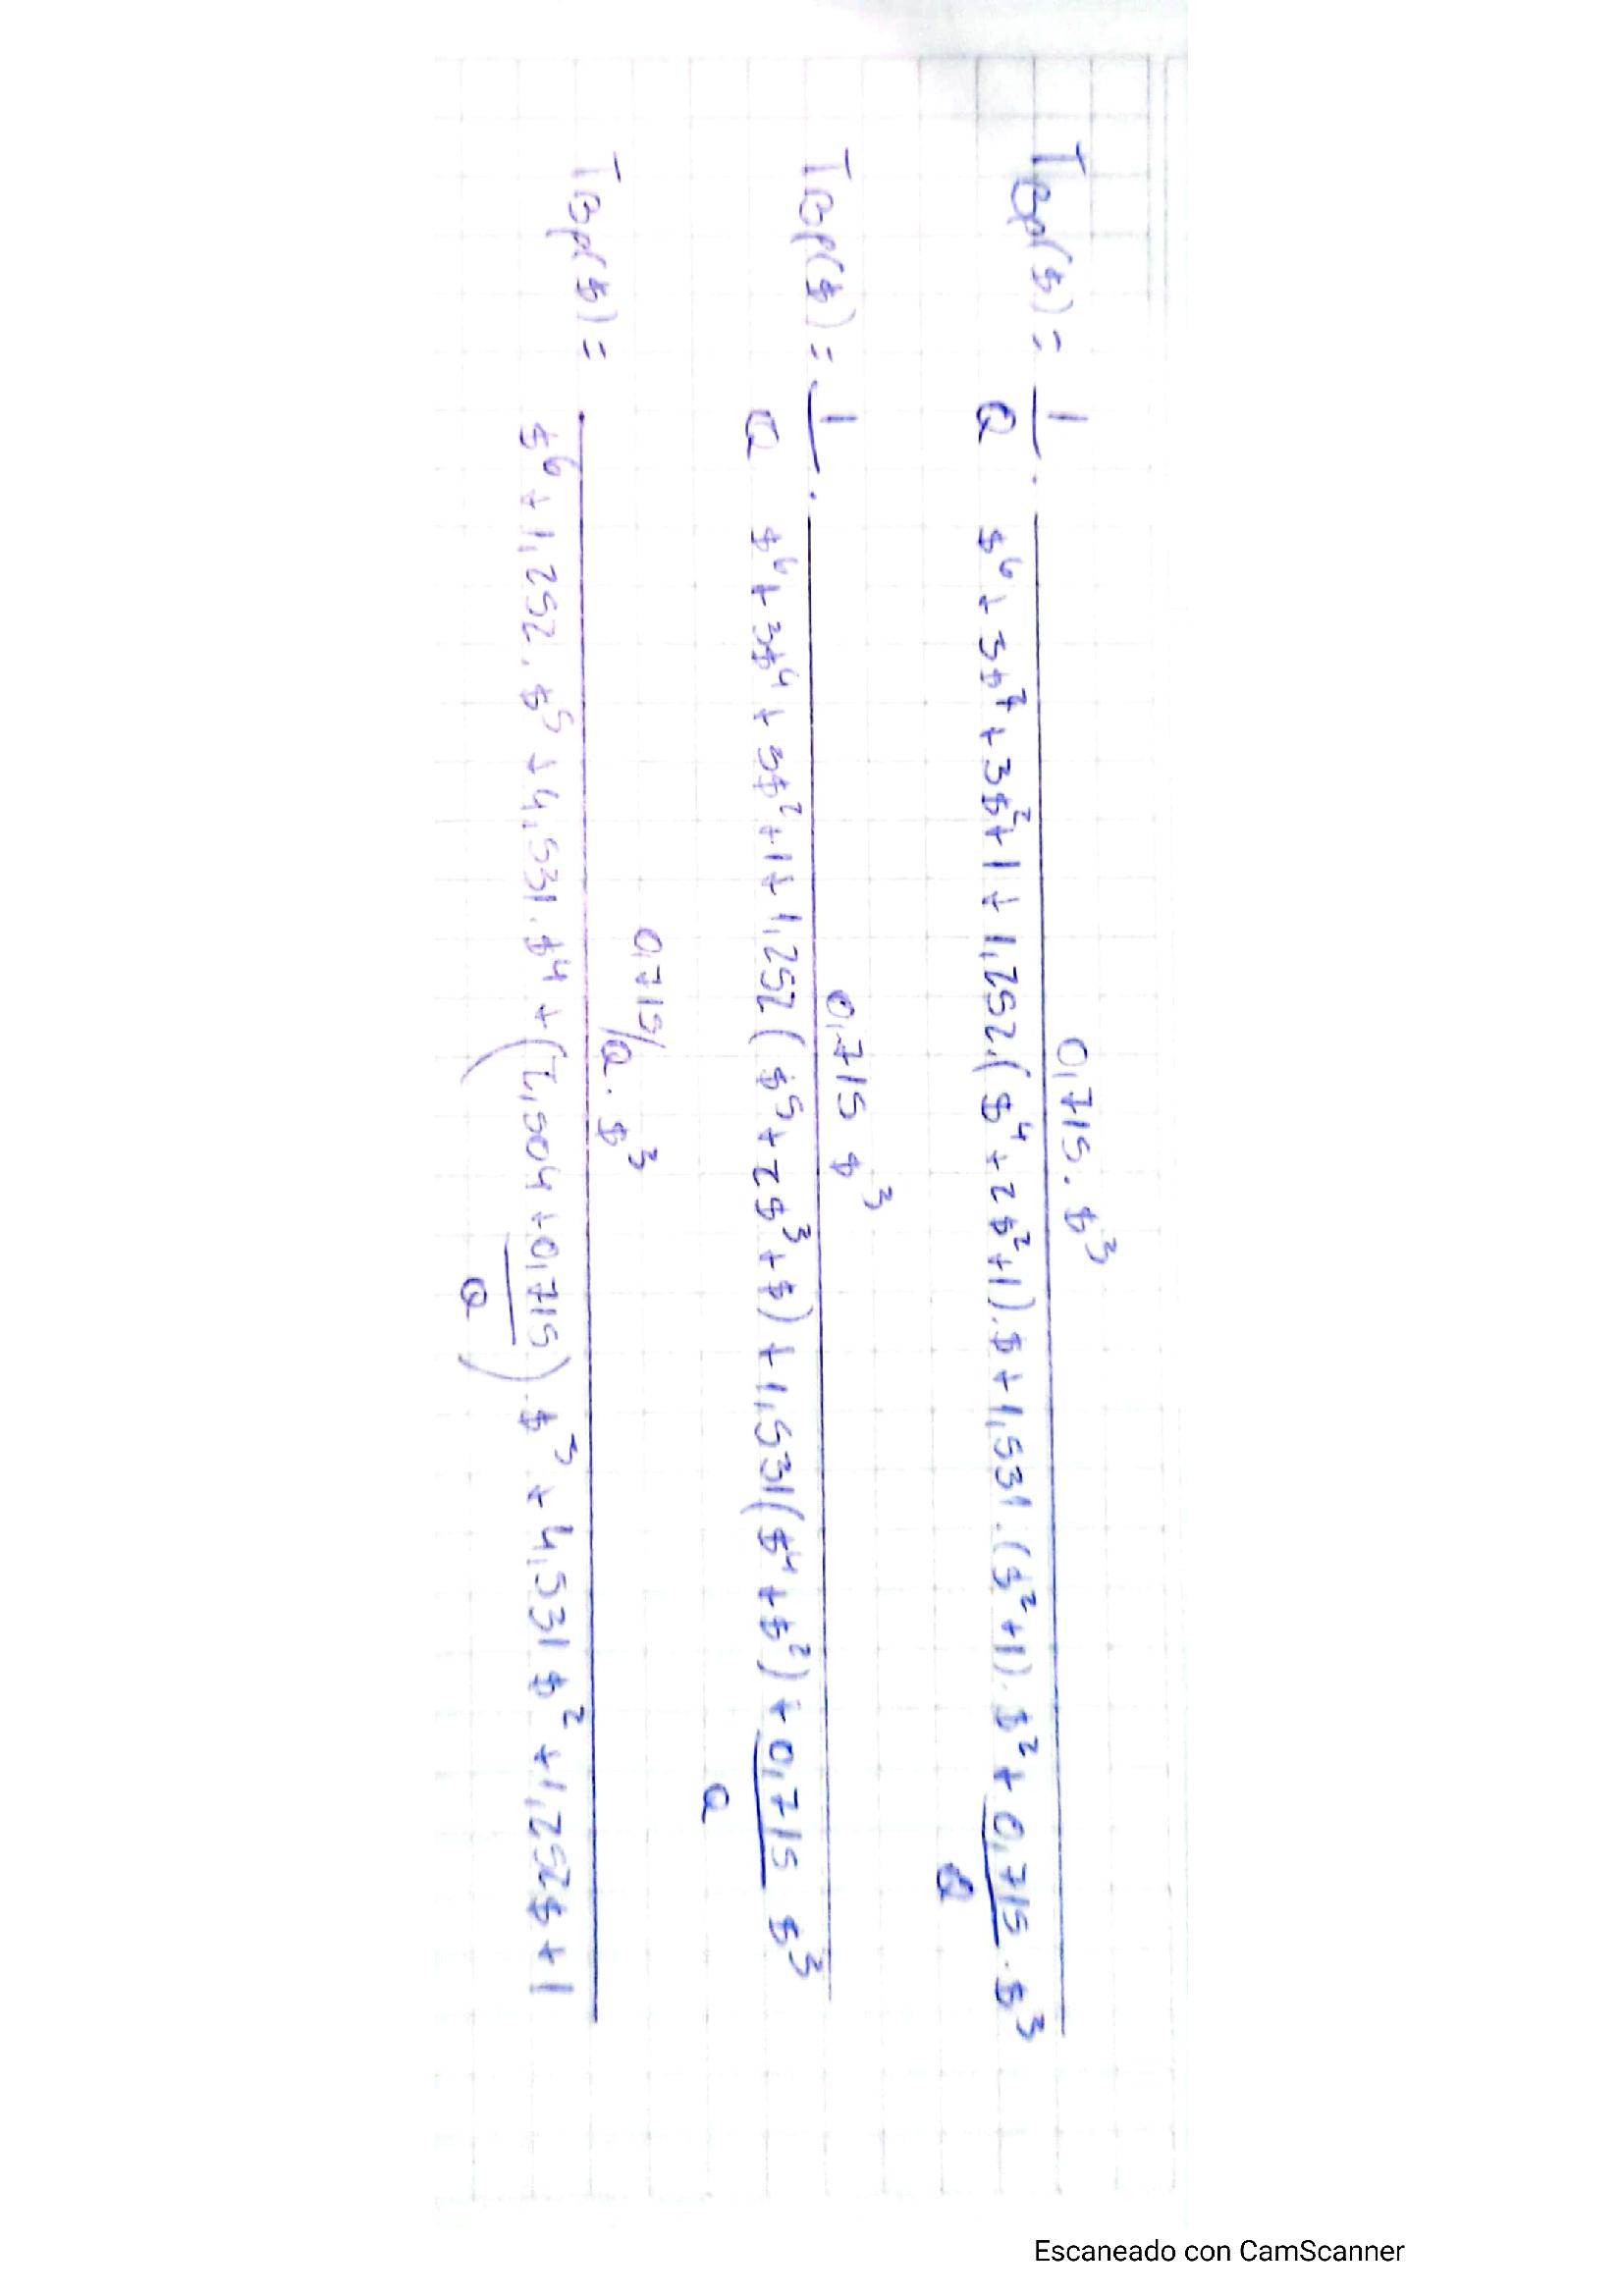 T_BP($) = 1/Q · (0,715 · $^3) / ($^6 + 3$^7 + 3$^2 + 1 + 1,252·($^4 + 2$^2 + 1)·$ + 1,531·($^2 + 1)·$^2 + 0,715/Q · $^3)
T_BP($) = 1/Q · (0,715 $^3) / ($^6 + 3$^4 + 3$^2 + 1 + 1,252($^5 + 2$^3 + $) + 1,531($^4 + $^2) + 0,715/Q $^3)
T_BP($) = (0,715/Q · $^3) / ($^6 + 1,252·$^5 + 4,531·$^4 + (2,504 + 0,715/Q)·$^3 + 4,531 $^2 + 1,252$ + 1)
Escaneado con CamScanner